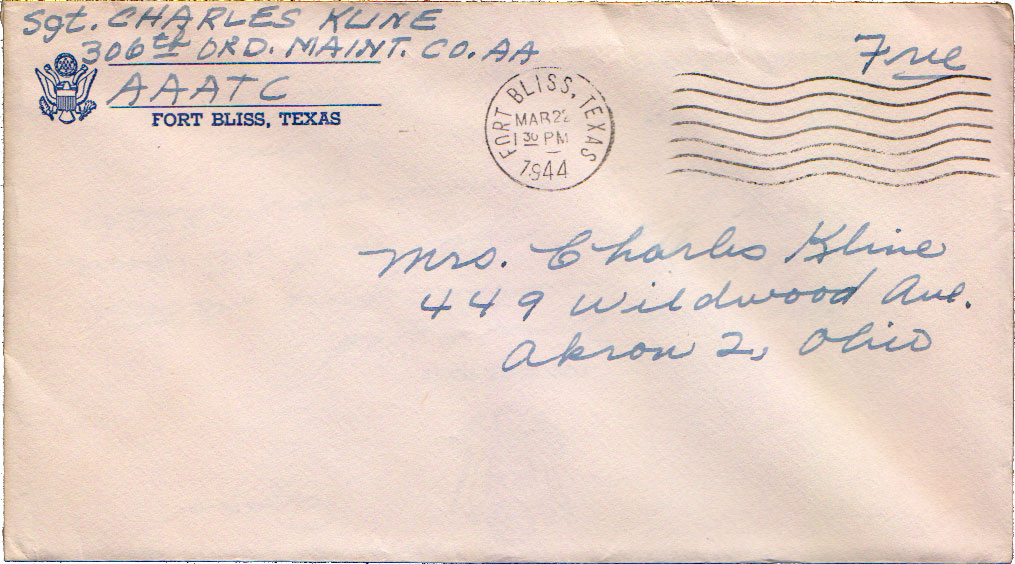 Sgt. CHARLES KLINE
306th ORD. MAINT. CO. AA
AAATC
FORT BLISS, TEXAS
Free
FORT BLISS, TEXAS
MAR 22
1 30 PM
1944
Mrs. Charles Kline
449 Wildwood Ave.
Akron 2, Ohio